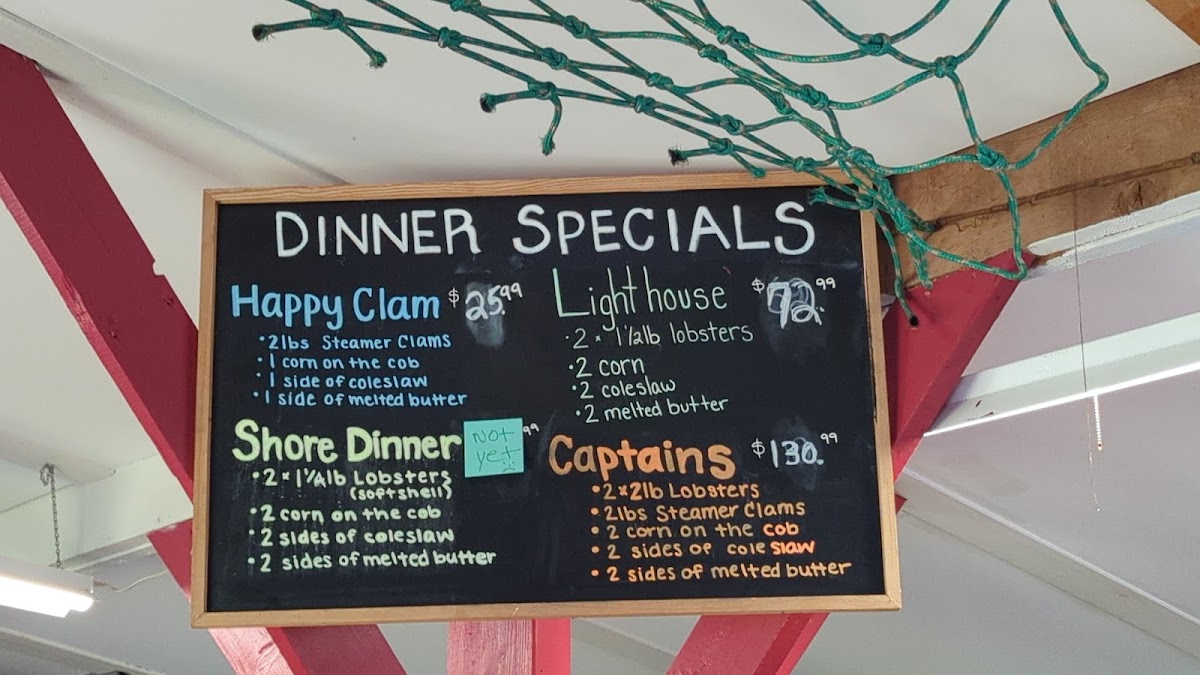 DINNER SPECIALS
Happy Clam $25.99
• 2lbs Steamer Clams
• 1 corn on the cob
• 1 side of coleslaw
• 1 side of melted butter
Lighthouse $72.99
• 2 × 1 1/2lb lobsters
• 2 corn
• 2 coleslaw
• 2 melted butter
Shore Dinner .99
not
yet
• 2 × 1 1/4lb Lobsters
(softshell)
• 2 corn on the cob
• 2 sides of coleslaw
• 2 sides of melted butter
Captains $130.99
• 2×2lb Lobsters
• 2lbs Steamer Clams
• 2 corn on the cob
• 2 sides of coleslaw
• 2 sides of melted butter